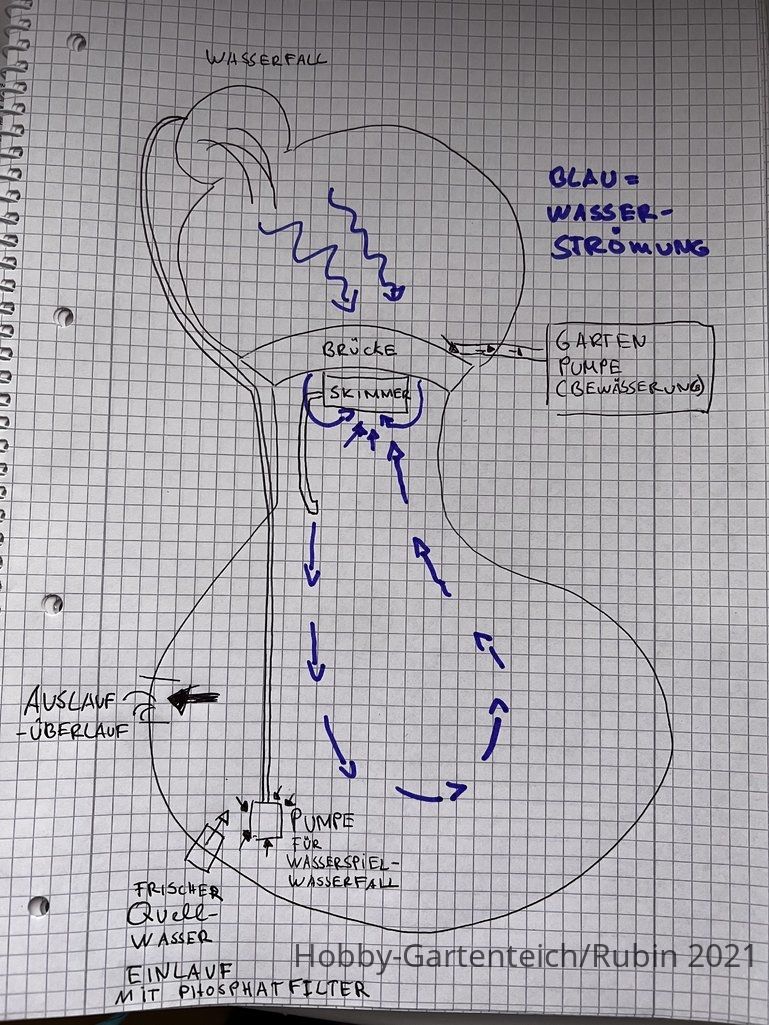 WASSERFALL
BLAU =
WASSER-
STRÖMUNG
GARTEN
PUMPE
(BEWÄSSERUNG)
BRÜCKE
SKIMMER
AUSLAUF
-ÜBERLAUF
PUMPE
FÜR
WASSERSPIEL-
WASSERFALL
FRISCHER
QUELL-
WASSER
EINLAUF
MIT PHOSPHATFILTER
Hobby-Gartenteich/Rubin 2021